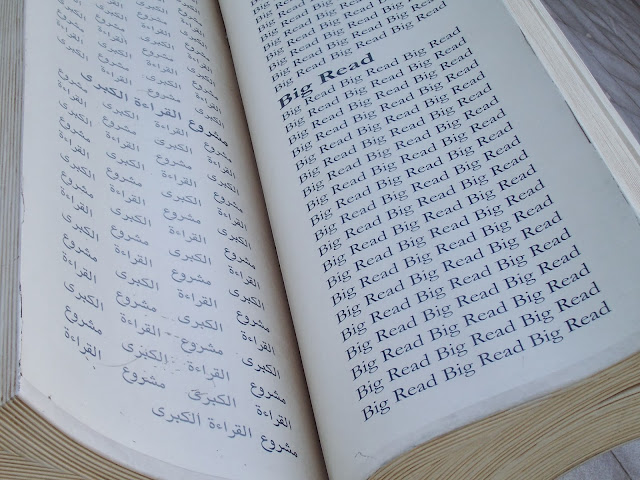 مشروع القراءة الكبرى
مشروع القراءة الكبرى مشروع
القراءة الكبرى مشروع القراءة
الكبرى مشروع القراءة الكبرى
مشروع القراءة الكبرى مشروع
القراءة الكبرى مشروع القراءة
الكبرى مشروع القراءة الكبرى
مشروع القراءة الكبرى مشروع
القراءة الكبرى مشروع القراءة
الكبرى مشروع القراءة الكبرى
مشروع القراءة الكبرى مشروع
القراءة الكبرى مشروع القراءة
الكبرى مشروع القراءة الكبرى
مشروع القراءة الكبرى مشروع
القراءة الكبرى مشروع القراءة
مشروع القراءة الكبرى
Big Read Big Read Big Read
Big Read Big Read Big Read
Big Read Big Read Big Read Big Read
Big Read Big Read Big Read Big Read
Big Read
Big Read Big Read Big Read Big Read
Big Read Big Read Big Read Big Read
Big Read Big Read Big Read Big Read
Big Read Big Read Big Read Big Read
Big Read Big Read Big Read Big Read
Big Read Big Read Big Read Big Read
Big Read Big Read Big Read Big Read
Big Read Big Read Big Read Big Read
Big Read Big Read Big Read Big Read
Big Read Big Read Big Read Big Read
Big Read Big Read Big Read Big Read
Big Read Big Read Big Read Big Read
Big Read Big Read Big Read Big Read
Big Read Big Read Big Read Big Read
Big Read Big Read Big Read Big Read
Big Read Big Read Big Read Big Read
Big Read Big Read Big Read Big Read
Big Read Big Read Big Read Big Read
Big Read Big Read Big Read Big Read